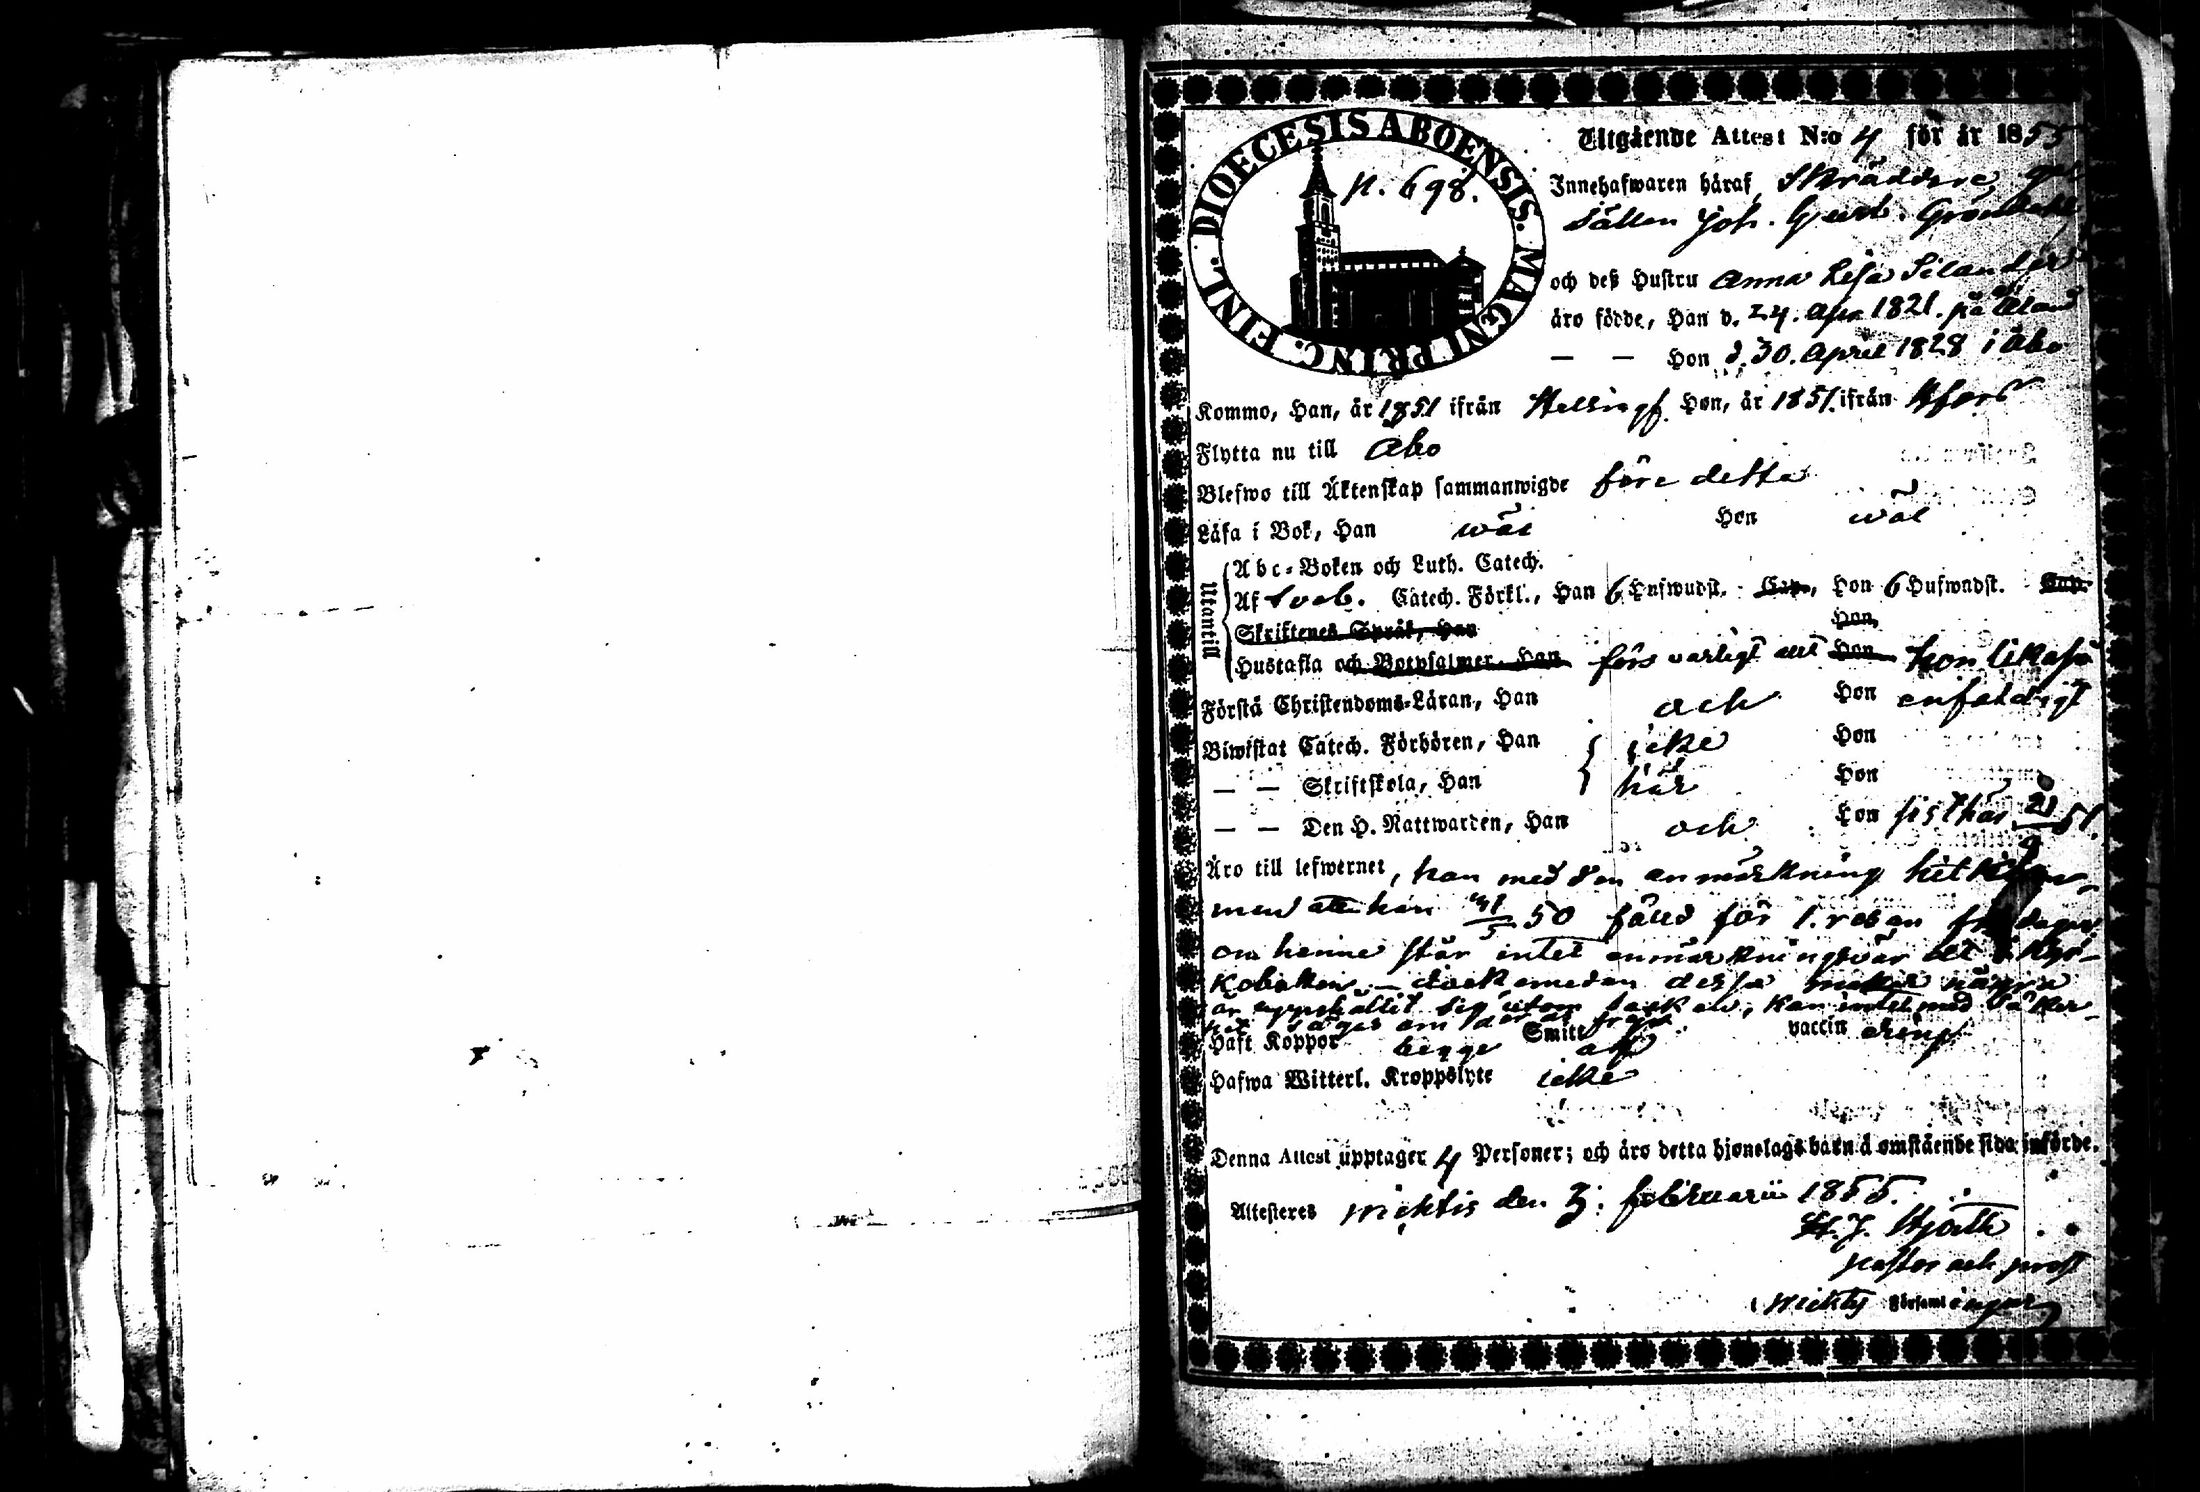 DIOECESIS ABOENSIS. MAGNI PRINC. FINL.
p. 698.
Utgående Attest N:o 4 för år 1855
Innehafwaren häraf Skräddare
sällen Joh. Gust.
och deß Hustru Anna Lisa Silander
äro födde, Han d. 24. Apr. 1821. på Åland
— — Hon d. 30. April 1828 i Åbo
Kommo, Han, år 1851 ifrån Helsingf. Hon, år 1851. ifrån Hfors
Flytta nu till Åbo
Blefwo till Äktenskap sammanwigde före detta
Läsa i Bok, Han wäl Hon wäl
Utantill
Abc-Boken och Luth. Catech.
Af Sveb. Catech. Förkl., Han 6 Hufwudst. Cap., Hon 6 Hufwudst. Cap.
Skriftenes Språk, Han Hon,
Hustafla och Botpsalmer, Han förs varligt allt Hon hon likaså
Förstå Christendoms-Läran, Han och Hon enfaldigt
Biwistat Catech. Förhören, Han icke Hon
— — Skriftskola, Han här Hon
— — Den H. Nattwarden, Han och Hon sist här 21/9 51.
Äro till lefwernet, han med den anmärkning hitkom-
men att han 31/5 50 fälld för 1. resan
om henne står intet anmärkningsvärdt i kyr-
koboken – dock emedan desse
år uppehållit sig utom socken, kan intet med säker-
het säges om deras frejd
Haft Koppor begge af Smitt vaccin ering
Hafwa Witterl. Kroppslyte icke
Denna Attest upptager 4 Personer; och äro detta hjonelags barn å omstående sida införde.
Attesteres Wichtis den 3. februarii 1855.
H. J. Hjorth
pastor och prost
i Wichtis Församlingar